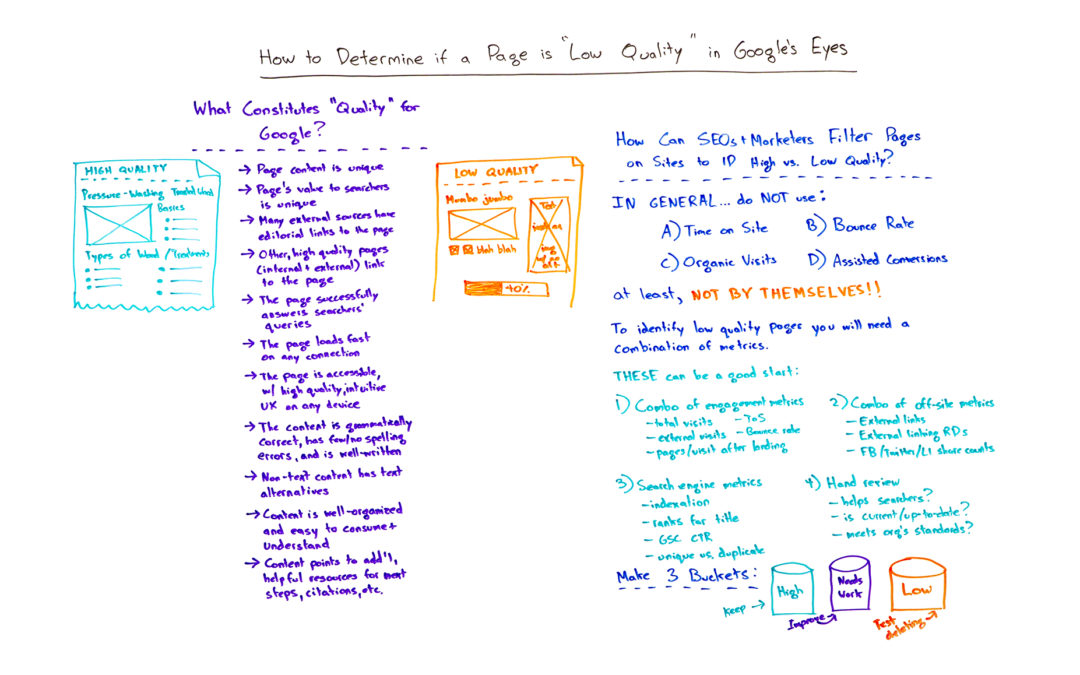 How to Determine if a Page is "Low Quality" in Google's Eyes
What Constitutes "Quality" for
Google?
HIGH QUALITY
Pressure-Washing Treated Wood
Basics
Types of Wood/Treatments
→ Page content is unique
→ Page's value to searchers
is unique
→ Many external sources have
editorial links to the page
→ Other, high quality pages
(internal + external) link
to the page
→ The page successfully
answers searchers'
queries
→ The page loads fast
on any connection
→ The page is accessible,
w/ high quality, intuitive
UX on any device
→ The content is grammatically
correct, has few/no spelling
errors, and is well-written
→ Non-text content has text
alternatives
→ Content is well-organized
and easy to consume +
understand
→ Content points to add'l,
helpful resources for next
steps, citations, etc.
LOW QUALITY
Mumbo jumbo
blah blah
40%
How Can SEOs + Marketers Filter Pages
on Sites to ID High vs. Low Quality?
IN GENERAL... do NOT use:
A) Time on Site
B) Bounce Rate
C) Organic Visits
D) Assisted Conversions
at least, NOT BY THEMSELVES!!
To identify low quality pages you will need a
combination of metrics.
THESE can be a good start:
1) Combo of engagement metrics
- total visits - ToS
- external visits - Bounce rate
- pages/visit after landing
2) Combo of off-site metrics
- External links
- External linking RDs
- FB/Twitter/LI share counts
3) Search engine metrics
- indexation
- ranks for title
- GSC CTR
- unique vs. duplicate
4) Hand review
- helps searchers?
- is current/up-to-date?
- meets org's standards?
Make 3 Buckets:
High
Needs
Work
Low
Keep →
Improve →
Test
deleting →